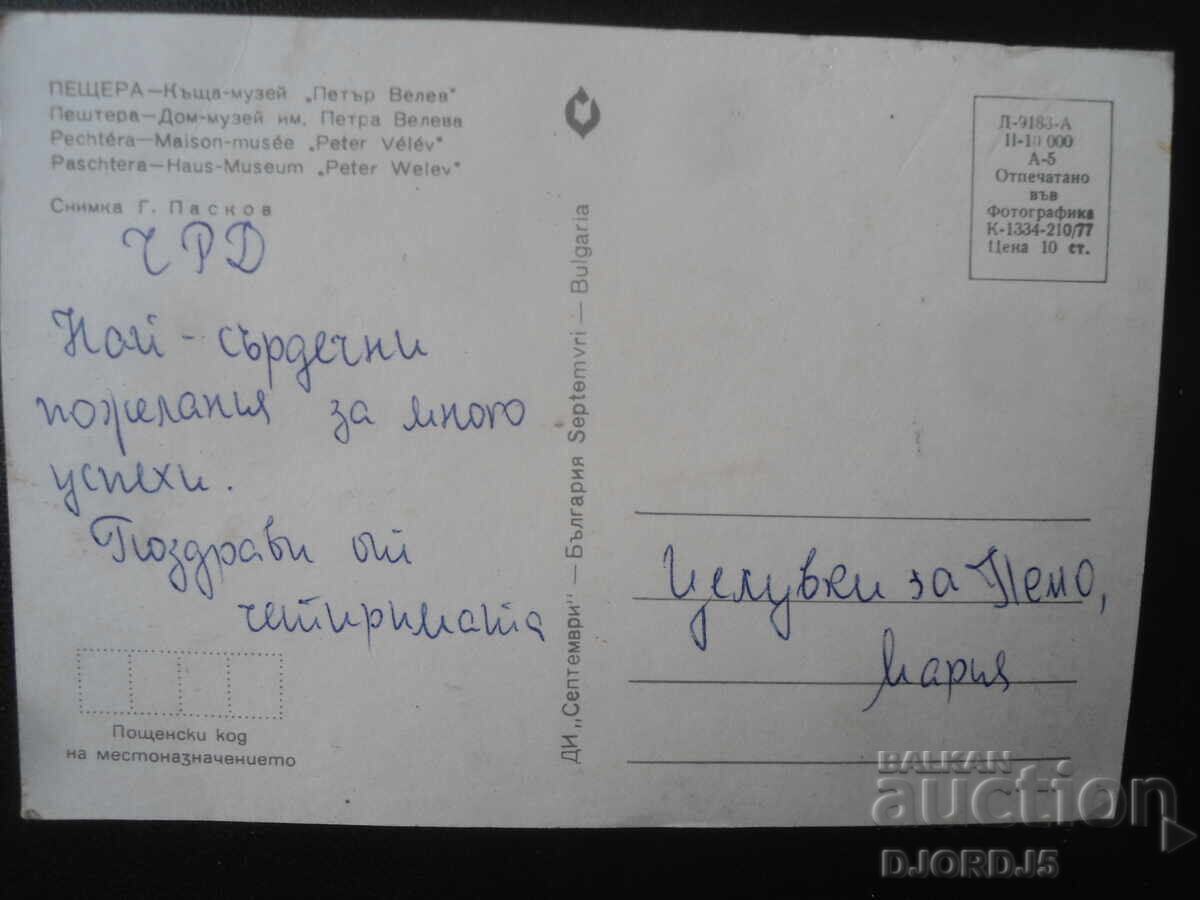 ПЕЩЕРА—Къща-музей „Петър Велев"
Пештера—Дом-музей им. Петра Велева
Pechtéra—Maison-musée „Peter Vélév"
Paschtera—Haus-Museum „Peter Welev"
Снимка Г. Пасков
ЧРД
Най-сърдечни
пожелания за много
успехи.
Поздрави от
четиримата
Пощенски код
на местоназначението
ДИ „Септември" — България Septemvri — Bulgaria
Д-9183-А
II-10 000
А-5
Отпечатано
във
Фотографика
К-1334-210/77
Цена 10 ст.
Целувки за Пемо,
Мария
BALKAN
auction
DJORDJ5